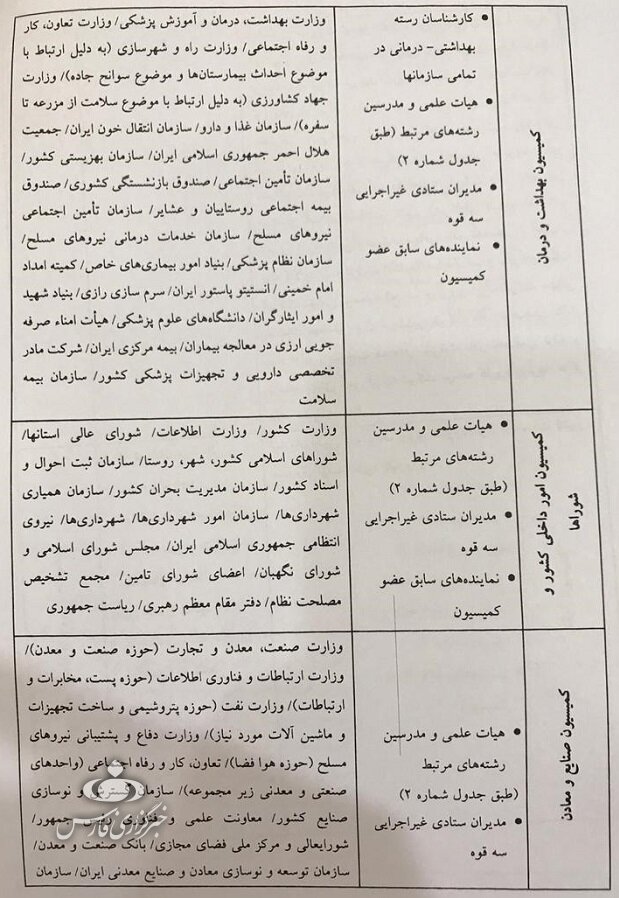 کمیسیون بهداشت و درمان
کارشناسان رسته
بهداشتی- درمانی در
تمامی سازمانها
هیات علمی و مدرسین
رشته‌های مرتبط (طبق
جدول شماره ۲)
مدیران ستادی غیراجرایی
سه قوه
نماینده‌های سابق عضو
کمیسیون
وزارت بهداشت، درمان و آموزش پزشکی/ وزارت تعاون، کار
و رفاه اجتماعی/ وزارت راه و شهرسازی (به دلیل ارتباط با
موضوع احداث بیمارستان‌ها و موضوع سوانح جاده)/ وزارت
جهاد کشاورزی (به دلیل ارتباط با موضوع سلامت از مزرعه تا
سفره)/ سازمان غذا و دارو/ سازمان انتقال خون ایران/ جمعیت
هلال احمر جمهوری اسلامی ایران/ سازمان بهزیستی کشور/
سازمان تأمین اجتماعی/ صندوق بازنشستگی کشوری/ صندوق
بیمه اجتماعی روستاییان و عشایر/ سازمان تأمین اجتماعی
نیروهای مسلح/ سازمان خدمات درمانی نیروهای مسلح/
سازمان نظام پزشکی/ بنیاد امور بیماری‌های خاص/ کمیته امداد
امام خمینی/ انستیتو پاستور ایران/ سرم سازی رازی/ بنیاد شهید
و امور ایثارگران/ دانشگاه‌های علوم پزشکی/ هیأت امناء صرفه
جویی ارزی در معالجه بیماران/ بیمه مرکزی ایران/ شرکت مادر
تخصصی دارویی و تجهیزات پزشکی کشور/ سازمان بیمه
سلامت
کمیسیون امور داخلی کشور و
شوراها
هیات علمی و مدرسین
رشته‌های مرتبط
(طبق جدول شماره ۲)
مدیران ستادی غیراجرایی
سه قوه
نماینده‌های سابق عضو
کمیسیون
وزارت کشور/ وزارت اطلاعات/ شورای عالی استانها/
شوراهای اسلامی کشور، شهر، روستا/ سازمان ثبت احوال و
اسناد کشور/ سازمان مدیریت بحران کشور/ سازمان همیاری
شهرداری‌ها/ سازمان امور شهرداری‌ها/ شهرداری‌ها/ نیروی
انتظامی جمهوری اسلامی ایران/ مجلس شورای اسلامی و
شورای نگهبان/ اعضای شورای تامین/ مجمع تشخیص
مصلحت نظام/ دفتر مقام معظم رهبری/ ریاست جمهوری
کمیسیون صنایع و معادن
هیات علمی و مدرسین
رشته‌های مرتبط
(طبق جدول شماره ۲)
مدیران ستادی غیراجرایی
سه قوه
وزارت صنعت، معدن و تجارت (حوزه صنعت و معدن)/
وزارت ارتباطات و فناوری اطلاعات (حوزه پست، مخابرات و
ارتباطات)/ وزارت نفت (حوزه پتروشیمی و ساخت تجهیزات
و ماشین آلات مورد نیاز)/ وزارت دفاع و پشتیبانی نیروهای
مسلح (حوزه هوا فضا)/ تعاون، کار و رفاه اجتماعی (واحدهای
صنعتی و معدنی زیر مجموعه)/ سازمان گسترش و نوسازی
صنایع کشور/ معاونت علمی و فناوری رئیس جمهور/
شورایعالی و مرکز ملی فضای مجازی/ بانک صنعت و معدن/
سازمان توسعه و نوسازی معادن و صنایع معدنی ایران/ سازمان
خبرگزاری فارس